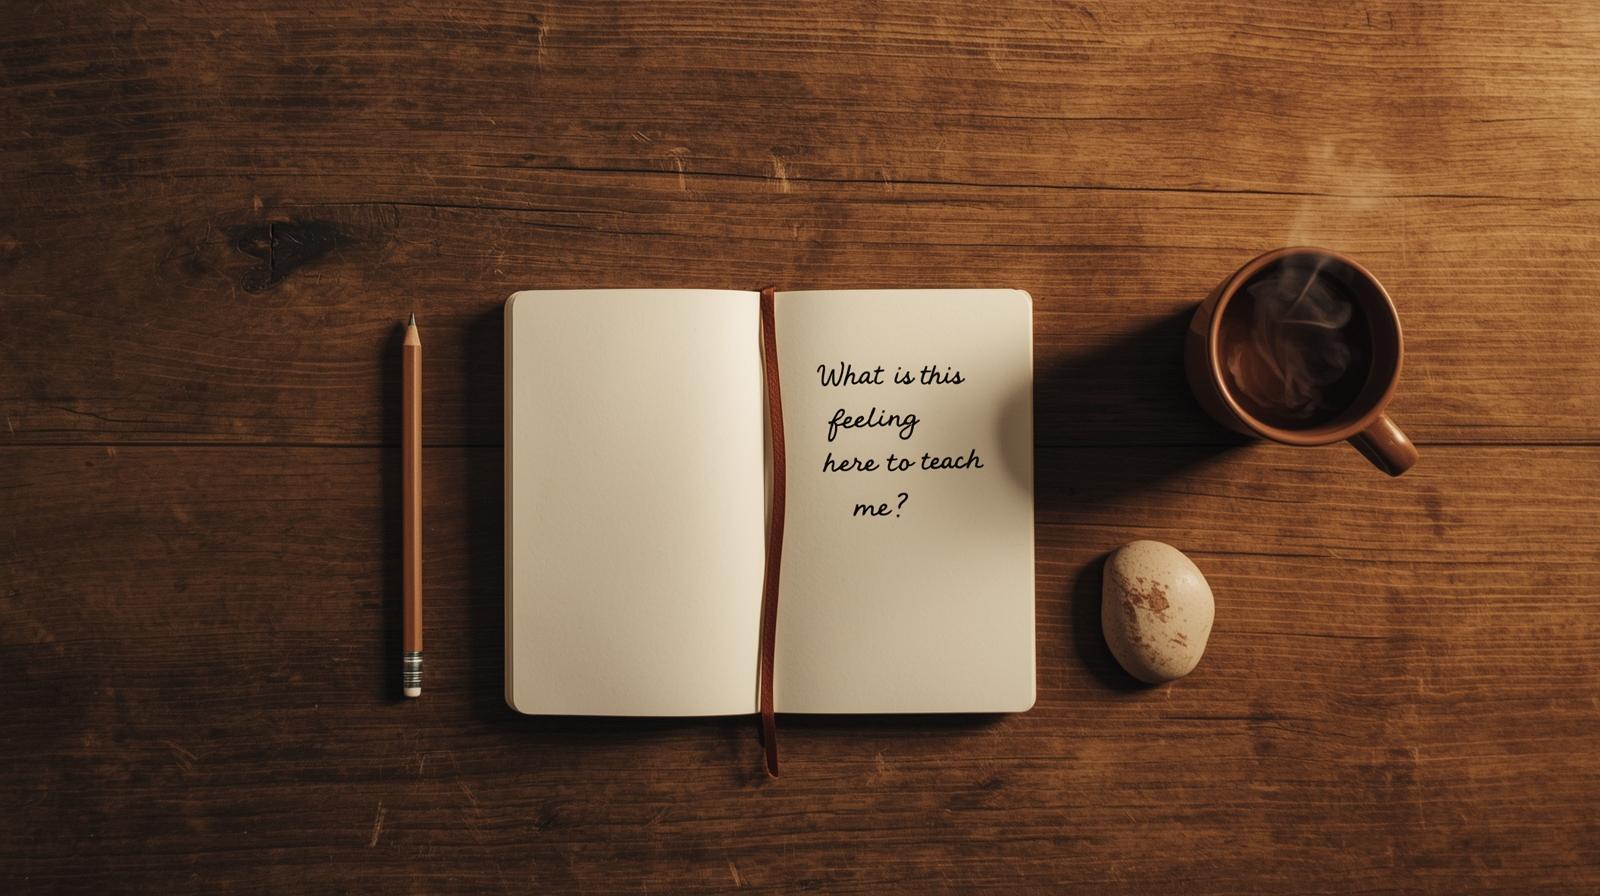 What is this
feeling
here to teach
me?